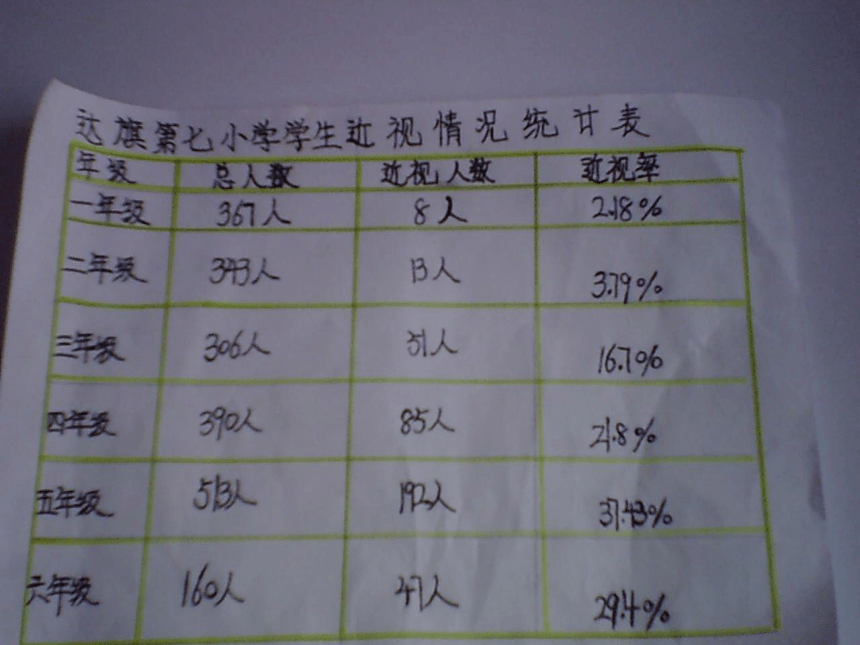 达旗第七小学学生近视情况统计表
年级 总人数 近视人数 近视率
一年级 367人 8人 2.18%
二年级 343人 13人 3.79%
三年级 306人 51人 16.7%
四年级 390人 85人 21.8%
五年级 513人 192人 37.43%
六年级 160人 47人 29.4%